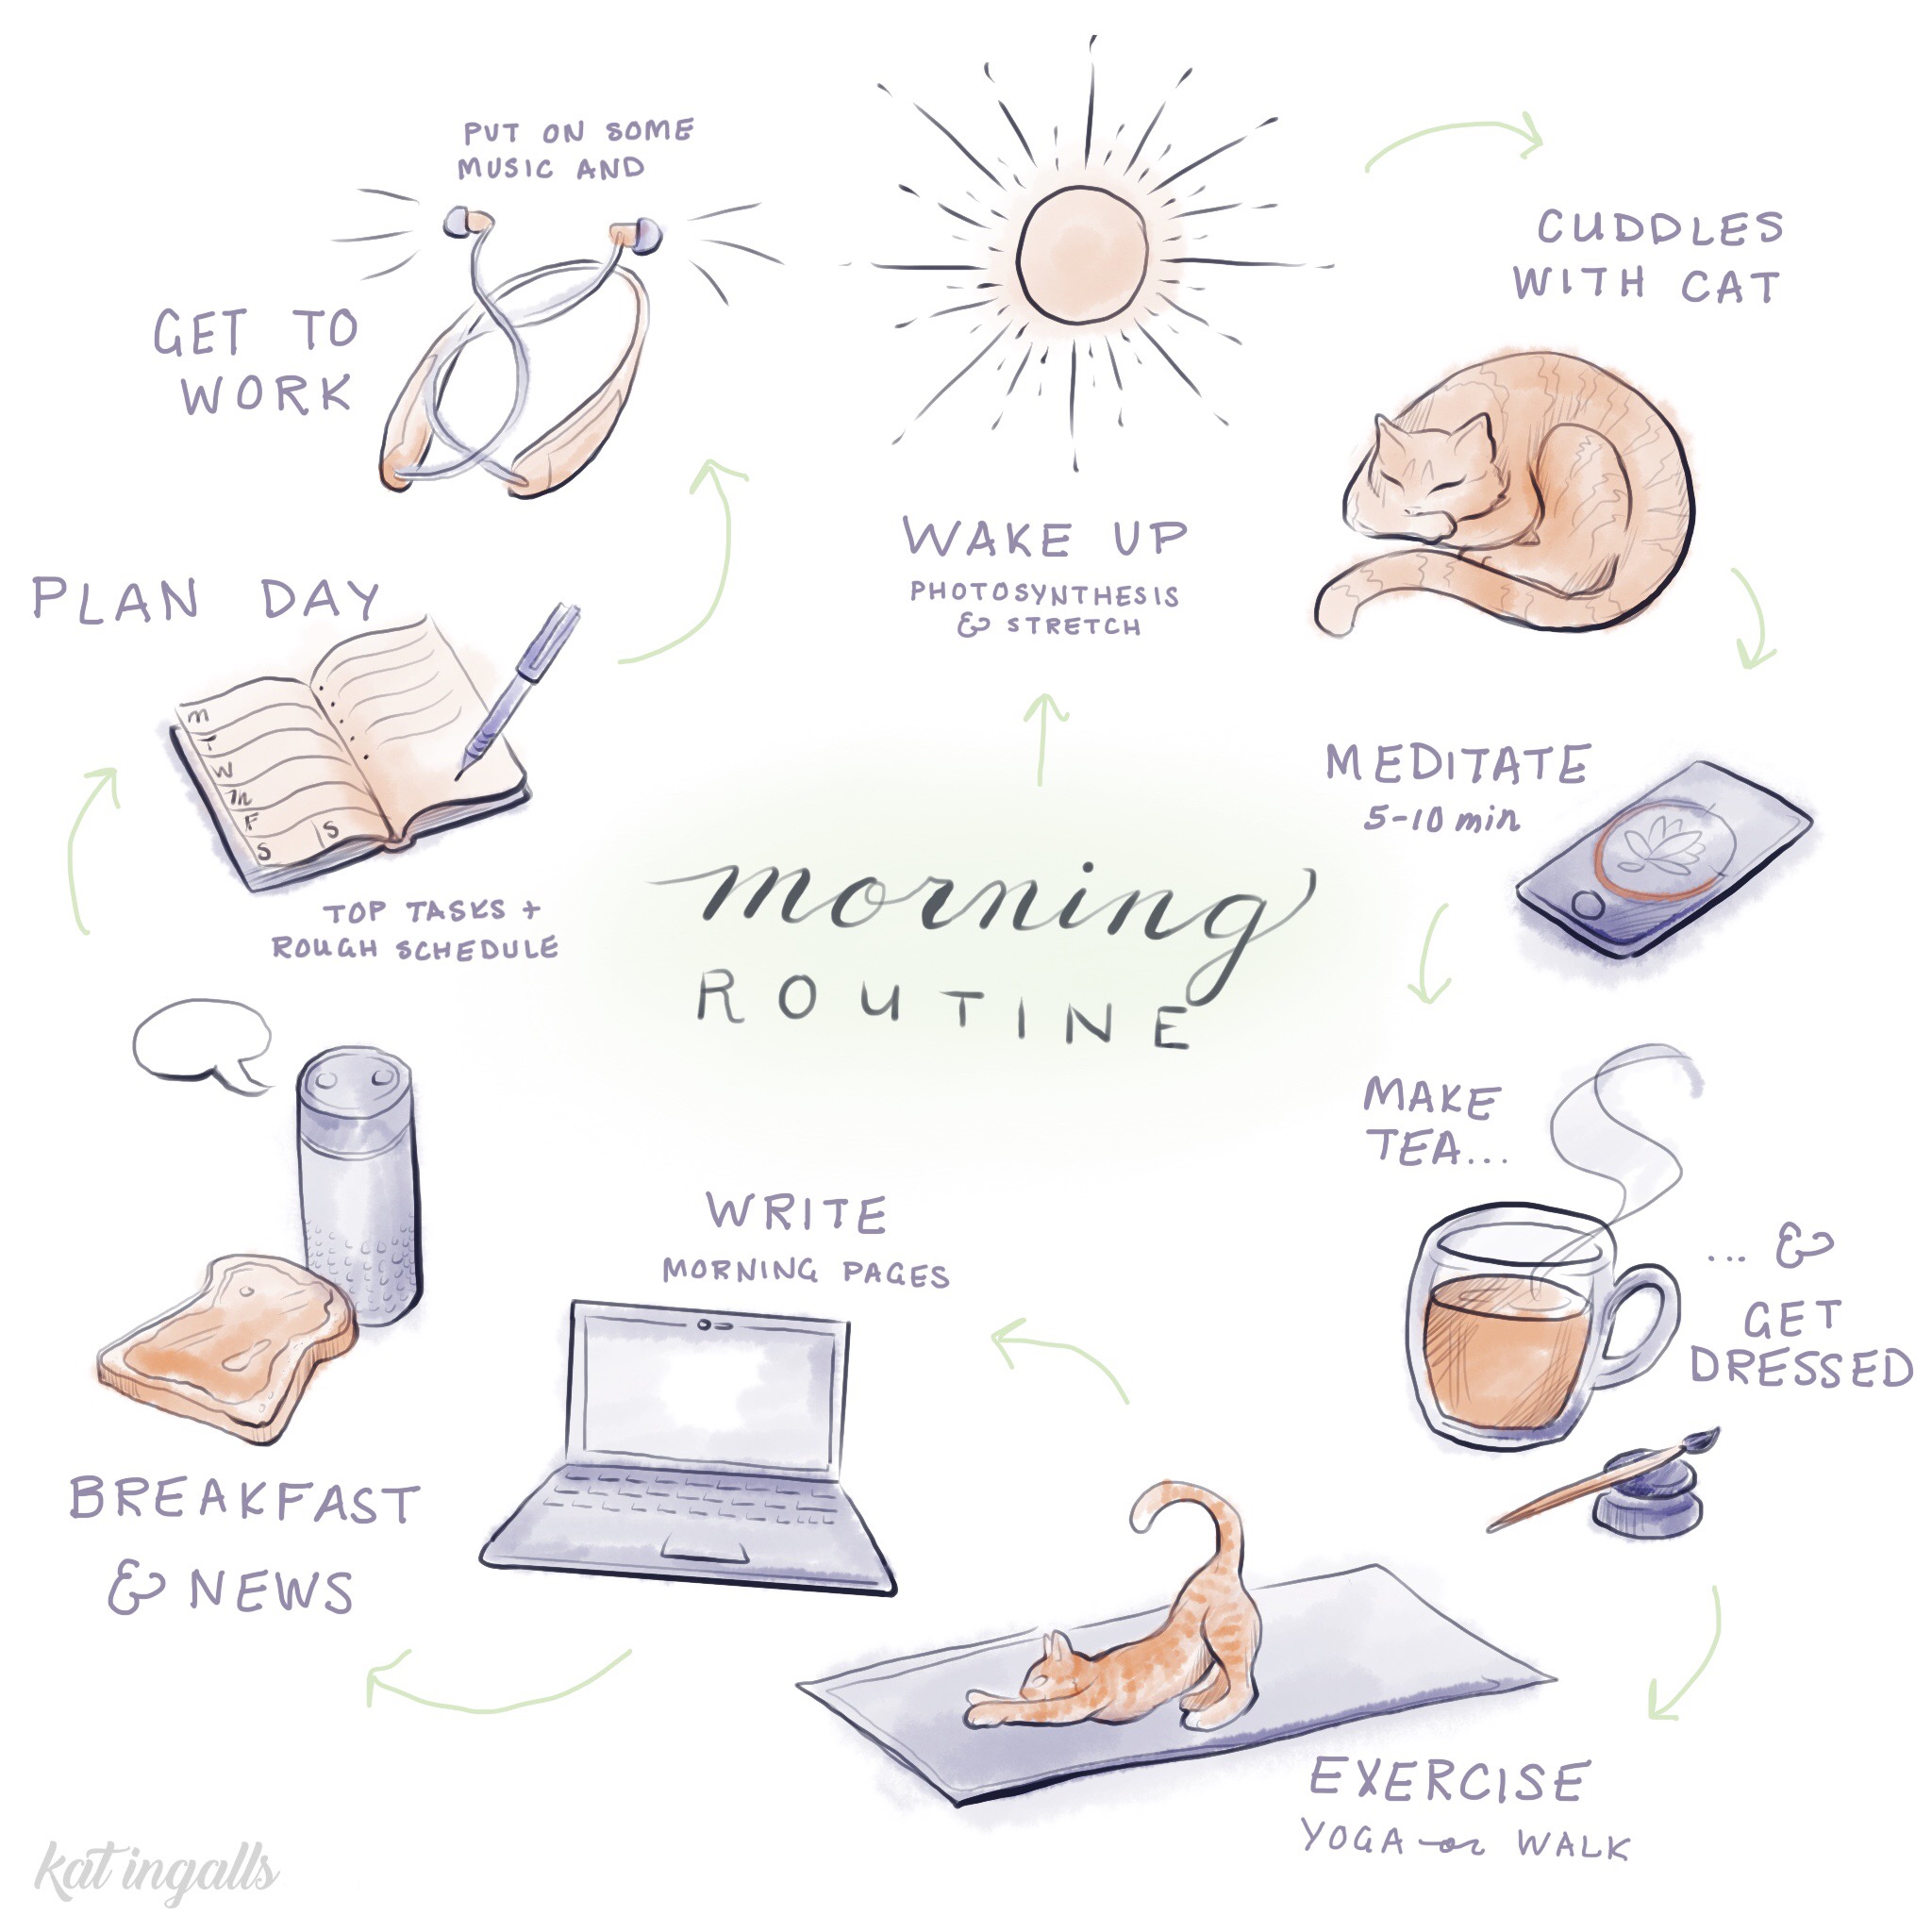 morning
ROUTINE
WAKE UP
PHOTOSYNTHESIS
& STRETCH
CUDDLES
WITH CAT
MEDITATE
5-10 min
MAKE
TEA...
... &
GET
DRESSED
EXERCISE
YOGA or WALK
WRITE
MORNING PAGES
BREAKFAST
& NEWS
PLAN DAY
M
T
W
Th
F
S
S
TOP TASKS +
ROUGH SCHEDULE
PUT ON SOME
MUSIC AND
GET TO
WORK
kat ingalls